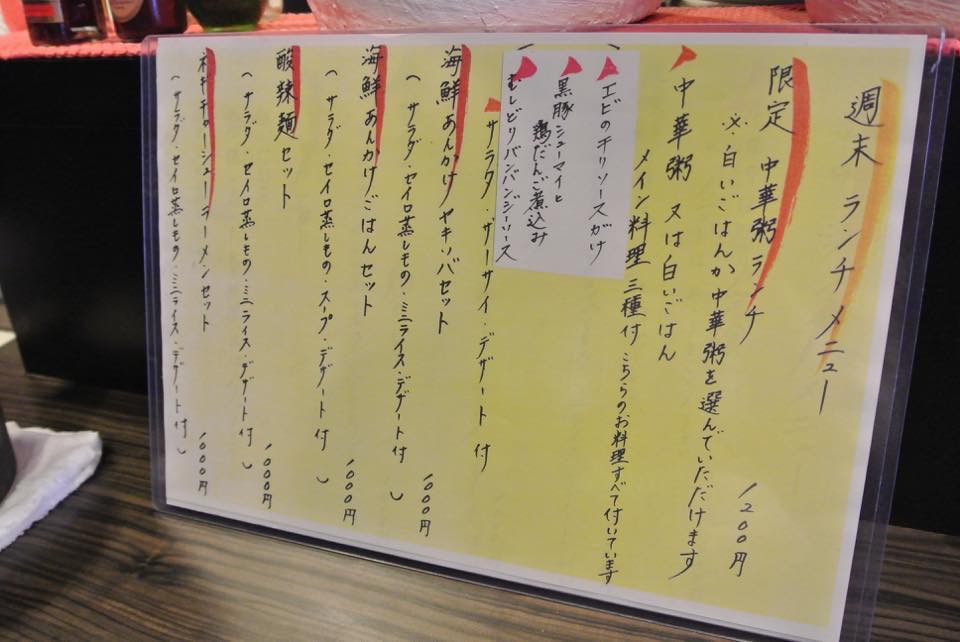 週末 ランチメニュー
限定 中華粥ランチ 1200円
※白いごはんか中華粥を選んでいただけます
中華粥 又は白いごはん
メイン料理 三種付 こちらのお料理すべて付いています
エビのチリソースがけ
黒豚シューマイと
鶏だんご煮込み
むしどりバンバンジーソース
サラダ・ザーサイ・デザート付
海鮮あんかけヤキソバセット 1000円
(サラダ・セイロ蒸しもの・ミニライス・デザート付)
海鮮あんかけごはんセット 1000円
(サラダ・セイロ蒸しもの・スープ・デザート付)
酸辣麺セット 1000円
(サラダ・セイロ蒸しもの・ミニライス・デザート付)
ネギチャーシューラーメンセット 1000円
(サラダ・セイロ蒸しもの・ミニライス・デザート付)